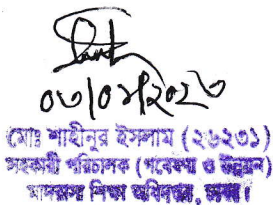 ০৩/০৯/২০২৩
মোঃ শাহীনুর ইসলাম (২৬২৩১)
সহকারী পরিচালক (গবেষণা ও উন্নয়ন)
মাদরাসা শিক্ষা অধিদপ্তর, ঢাকা।